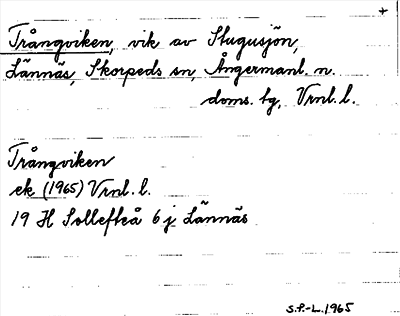 +
Trångviken, vik av Stugusjön,
Lännäs, Skorpeds sn, Ångermanl. n.
doms. tg, Vrnl. l.
Trångviken
ek (1965) Vrnl. l.
19 H Sollefteå 6 j Lännäs
S.F.-L. 1965